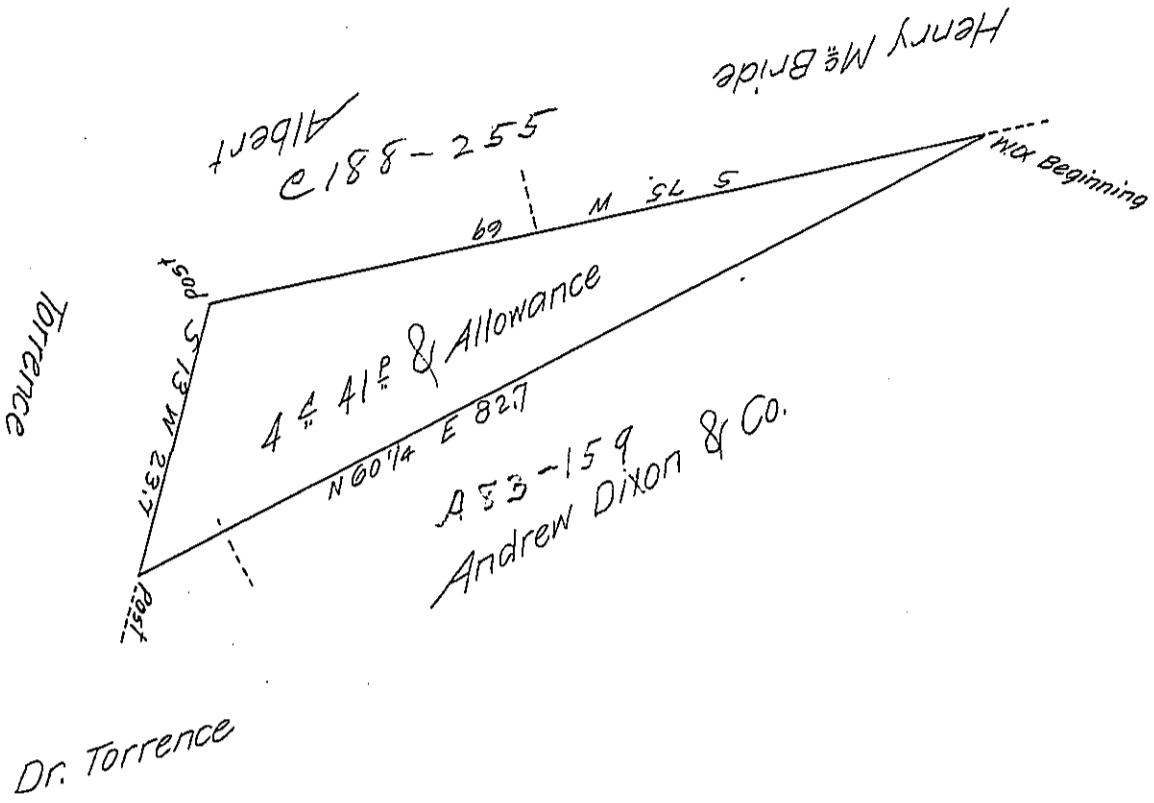 Henry Mc Bride
Albert
C188-255
W.O. Beginning
S 75. W 69
Post
Torrence
S 13 W 23.7
4 A 41 P & Allowance
N 60 1/4 E 82.7
A 83-159
Andrew Dixon & Co.
Post
Dr. Torrence